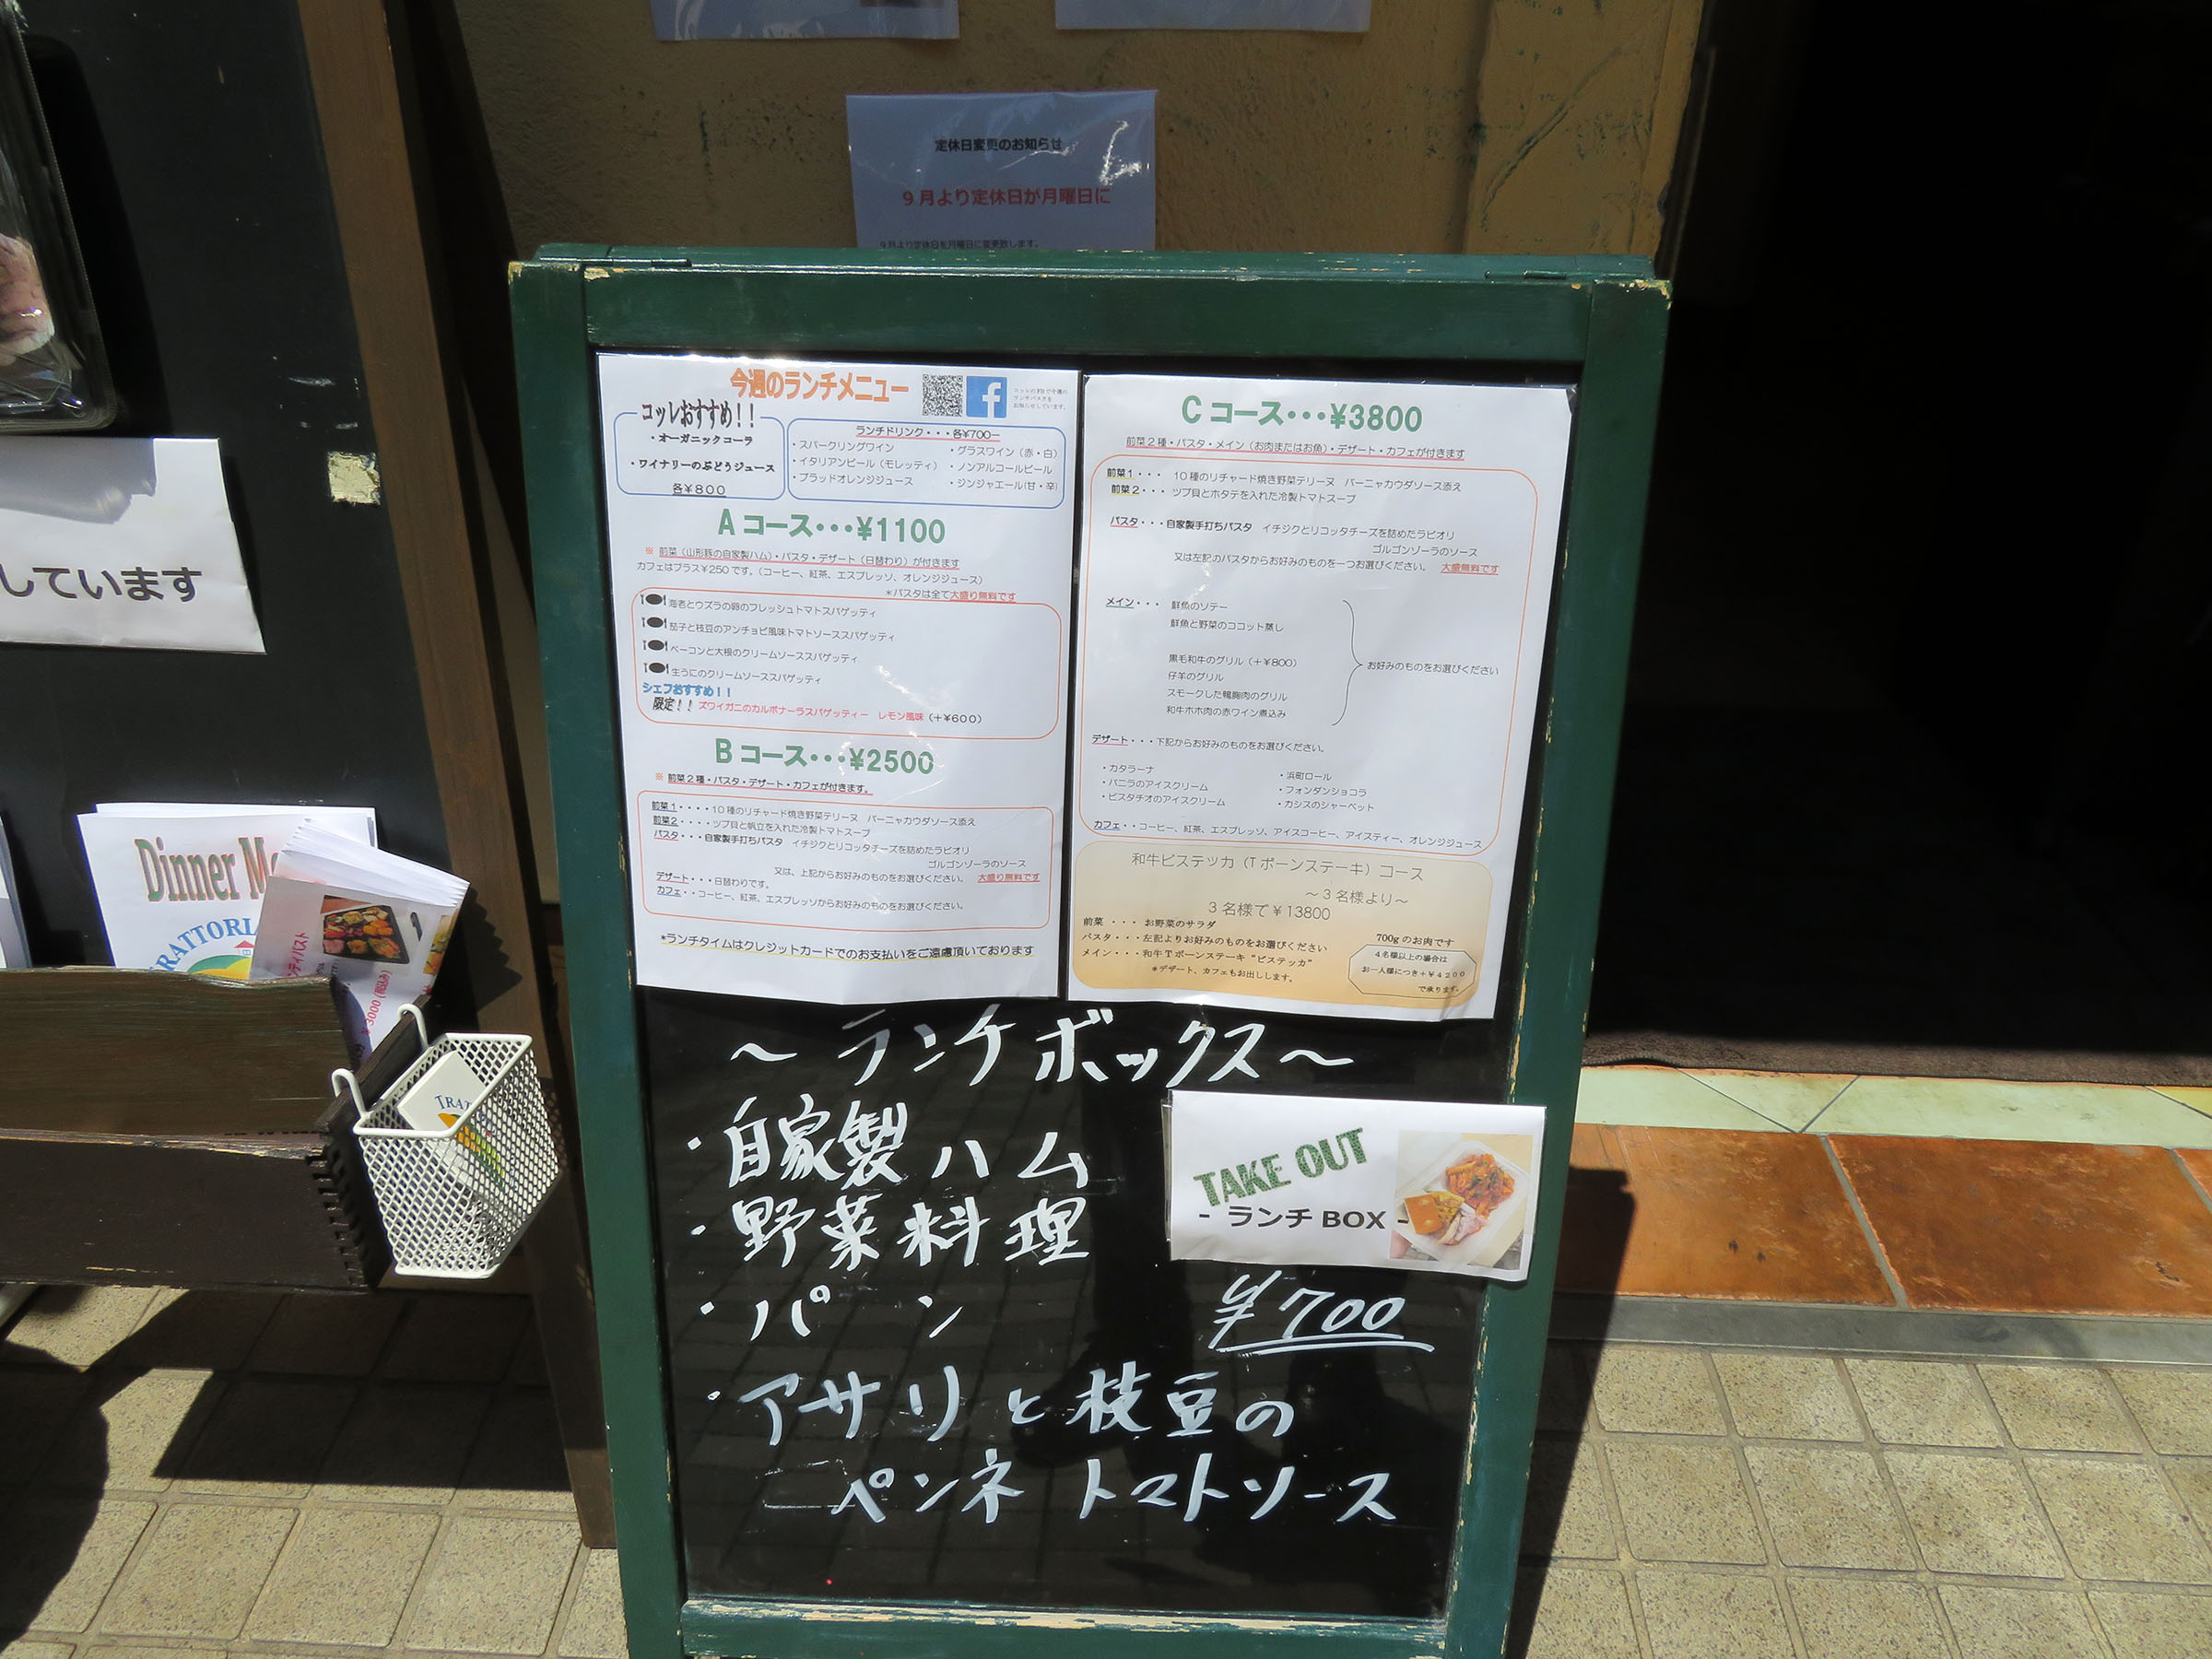 定休日変更のお知らせ
9月より定休日が月曜日に
9月より定休日を月曜日に変更致します。
しています
Dinner
TRATTORI
¥3000(税込)
TRAT
今週のランチメニュー
コッレおすすめ！！
・オーガニックコーラ
・ワイナリーのぶどうジュース
各¥800
ランチドリンク・・・各¥700ー
・スパークリングワイン ・グラスワイン（赤・白）
・イタリアンビール（モレッティ） ・ノンアルコールビール
・ブラッドオレンジジュース ・ジンジャエール(甘・辛)
Aコース・・・¥1100
※ 前菜（山形豚の自家製ハム）・パスタ・デザート（日替わり）が付きます
カフェはプラス¥250です。（コーヒー、紅茶、エスプレッソ、オレンジジュース）
＊パスタは全て大盛り無料です
海老とウズラの卵のフレッシュトマトスパゲッティ
茄子と枝豆のアンチョビ風味トマトソーススパゲッティ
ベーコンと大根のクリームソーススパゲッティ
生うにのクリームソーススパゲッティ
シェフおすすめ！！
限定！！ ズワイガニのカルボナーラスパゲッティー レモン風味（＋¥600）
Bコース・・・¥2500
※ 前菜2種・パスタ・デザート・カフェが付きます。
前菜1・・・・10種のリチャード焼き野菜テリーヌ バーニャカウダソース添え
前菜2・・・・ツブ貝と帆立を入れた冷製トマトスープ
パスタ・・・自家製手打ちパスタ イチジクとリコッタチーズを詰めたラビオリ
ゴルゴンゾーラのソース
又は、上記からお好みのものをお選びください。 大盛り無料です
デザート・・・日替わりです。
カフェ・・コーヒー、紅茶、エスプレッソからお好みのものをお選びください。
*ランチタイムはクレジットカードでのお支払いをご遠慮頂いております
Cコース・・・¥3800
前菜2種・パスタ・メイン（お肉またはお魚）・デザート・カフェが付きます
前菜1・・・ 10種のリチャード焼き野菜テリーヌ バーニャカウダソース添え
前菜2・・・ ツブ貝とホタテを入れた冷製トマトスープ
パスタ・・・自家製手打ちパスタ イチジクとリコッタチーズを詰めたラビオリ
ゴルゴンゾーラのソース
又は左記のパスタからお好みのものを一つお選びください。 大盛無料です
メイン・・・ 鮮魚のソテー
鮮魚と野菜のココット蒸し
黒毛和牛のグリル（＋¥800）
お好みのものをお選びください
仔羊のグリル
スモークした鴨胸肉のグリル
和牛ホホ肉の赤ワイン煮込み
デザート・・・下記からお好みのものをお選びください。
・カタラーナ ・浜町ロール
・バニラのアイスクリーム ・フォンダンショコラ
・ピスタチオのアイスクリーム ・カシスのシャーベット
カフェ・・コーヒー、紅茶、エスプレッソ、アイスコーヒー、アイスティー、オレンジジュース
和牛ビステッカ（Tボーンステーキ）コース
～3名様より～
3名様で¥13800
前菜 ・・・ お野菜のサラダ
パスタ・・・左記よりお好みのものをお選びください
メイン・・・和牛Tボーンステーキ"ビステッカ"
＊デザート、カフェもお出しします。
700gのお肉です
4名様以上の場合は
お一人様につき＋¥4200
で承ります。
～ランチボックス～
・自家製ハム
・野菜料理
・パン
TAKE OUT
- ランチBOX -
¥700
・アサリと枝豆の
ペンネ トマトソース